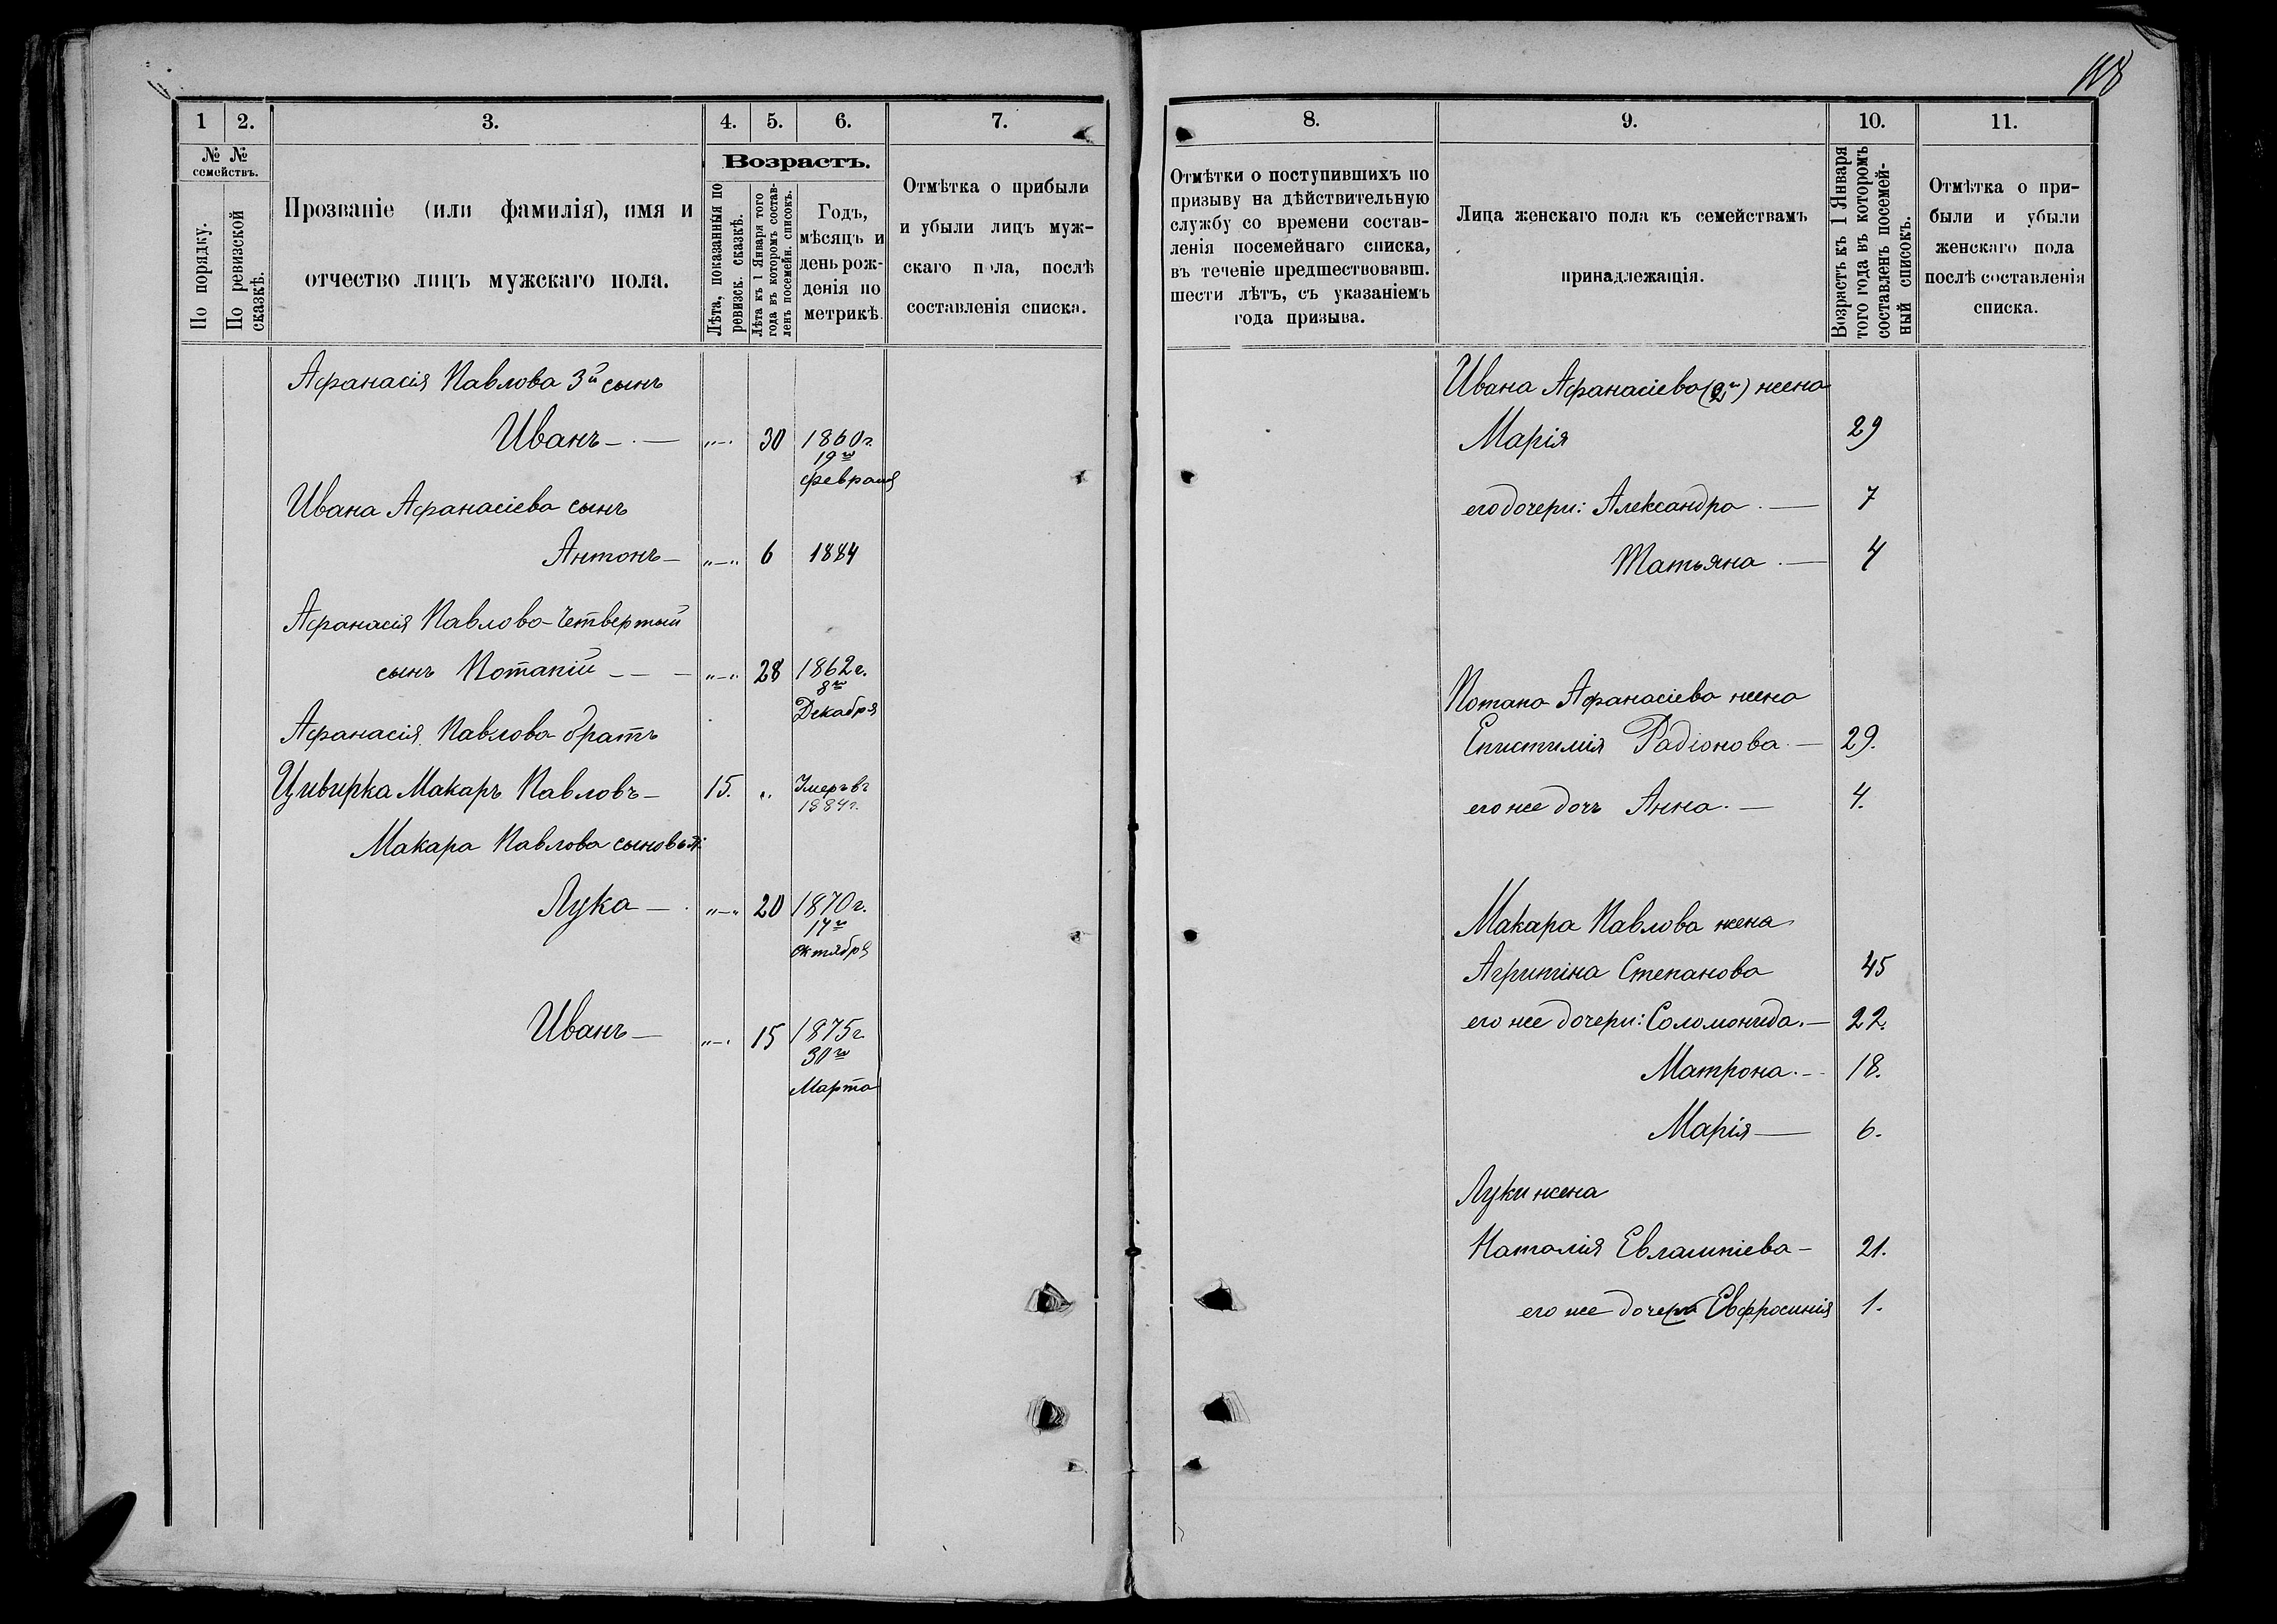 118
1 2. 3. 4. 5. 6. 7.
№ №
семействъ.
По порядку.
По ревизской
сказкѣ.
Прозваніе (или фамилія), имя и
отчество лицъ мужскаго пола.
Возрастъ.
Лѣта, показанныя по
ревизск. сказкѣ.
Лѣта къ 1 Января того
года въ которомъ состав-
ленъ посемейн. списокъ.
Годъ,
мѣсяцъ и
день рож-
денія по
метрикѣ.
Отмѣтка о прибыли
и убыли лицъ муж-
скаго пола, послѣ
составленія списка.
Афанасія Павлова 3й сынъ
Иванъ — „—„ 30 1860 г.
19го
февраля
Ивана Афанасіева сынъ
Антонъ — „—„ 6 1884
Афанасія Павлова четвертый
сынъ Потапій — — „—„ 28 1862 г.
8го
Декабря
Афанасія Павлова братъ
Цивирка Макаръ Павловъ — 15. „ Умеръ въ
1884 г.
Макара Павлова сыновья:
Лука — „—„ 20 1870 г.
17го
октября
Иванъ — „—„ 15 1875 г.
30го
Марта
8. 9. 10. 11.
Отмѣтки о поступившихъ по
призыву на дѣйствительную
службу со времени состав-
ленія посемейнаго списка,
въ теченіе предшествовавш.
шести лѣтъ, съ указаніемъ
года призыва.
Лица женскаго пола къ семействамъ
принадлежащія.
Возрастъ къ 1 Января
того года въ которомъ
составленъ посемей-
ный списокъ.
Отмѣтка о при-
были и убыли
женскаго пола
послѣ составленія
списка.
Ивана Афанасіева (2й) жена
Марія 29
его дочери: Александра — 7
Татьяна — 4
Потапа Афанасіева жена
Епистимія Радіонова — 29.
его же дочь Анна — 4.
Макара Павлова жена
Агрипіна Степанова 45
его же дочери: Соломонида — 22.
Матрона — 18.
Марія — 6.
Луки жена
Наталія Евлампіева — 21.
его же дочери Евфросинія 1.